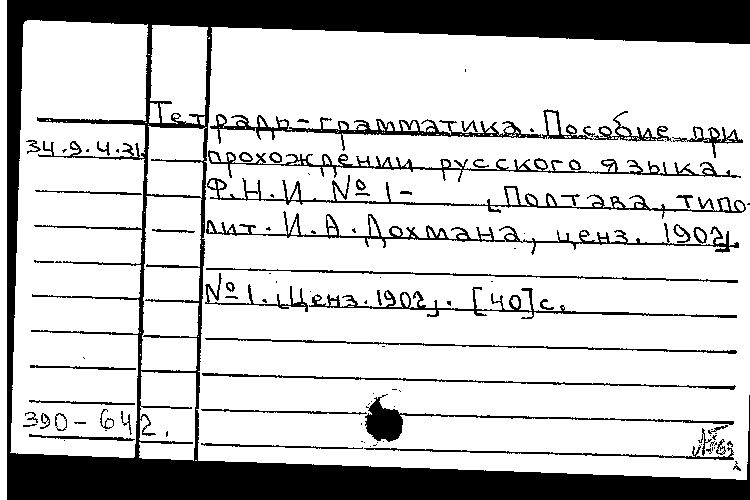 Тетрадь-грамматика. Пособие при
34.9.4.31. прохождении русского языка.
Ф.Н.И. № 1- [Полтава, типо-
лит. И.А. Дохмана, ценз. 1902].
№ 1. [Ценз. 1902]. [40] с.
390-642.